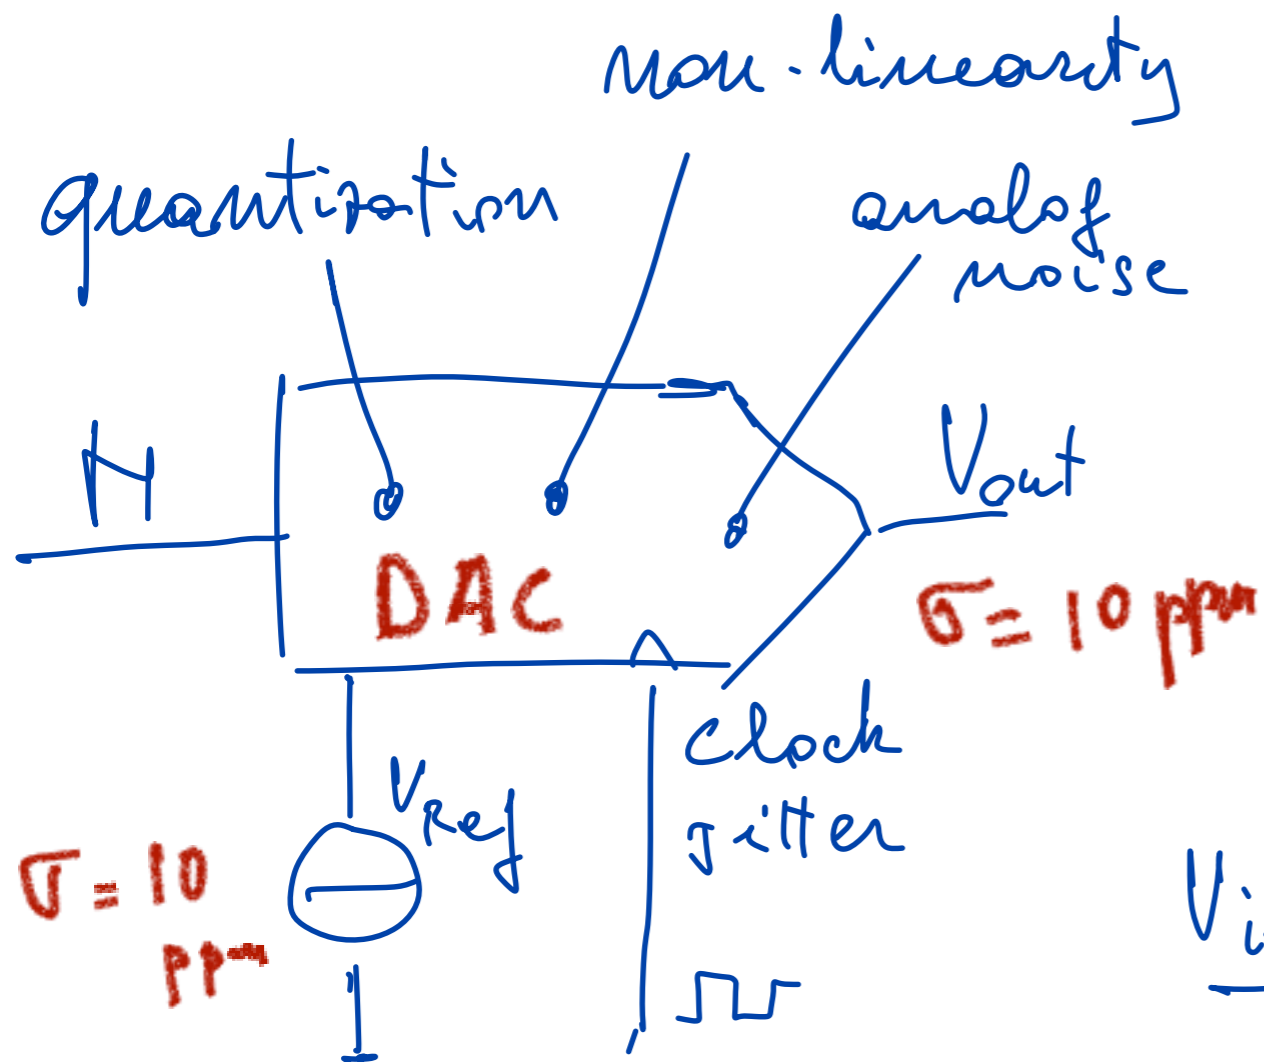 non-linearity
quantization
analog
noise
N
Vout
DAC
σ = 10 ppm
Clock
VRef
jitter
σ = 10
ppm
Vi